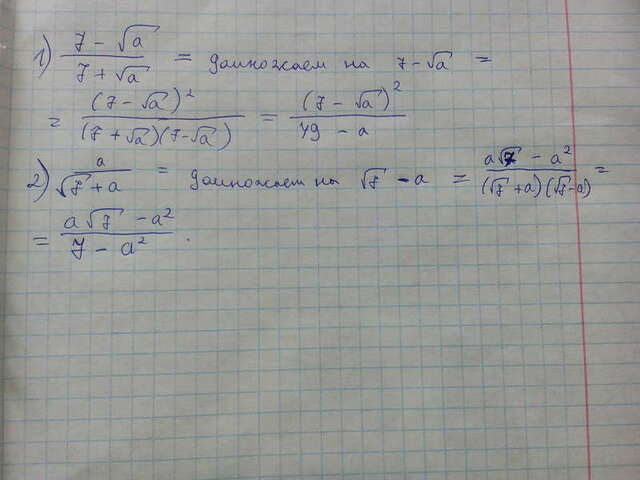 1) (7 - √a) / (7 + √a) = домножаем на 7 - √a =
= (7 - √a)² / (7 + √a)(7 - √a) = (7 - √a)² / 49 - a
2) a / (√7 + a) = домножаем на √7 - a = a√7 - a² / (√7 + a)(√7 - a) =
= a√7 - a² / 7 - a² .